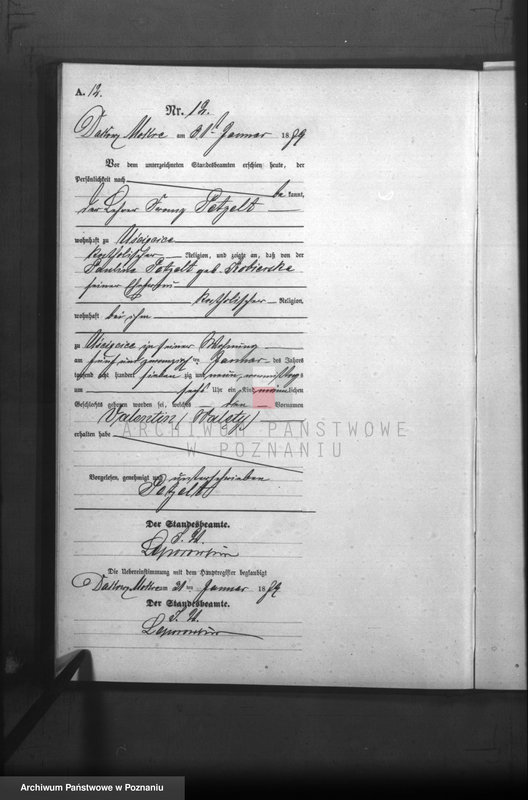 A. 12.
Nr. 12.
Dakowy Mokre am 31t Januar 1879
Vor dem unterzeichneten Standesbeamten erschien heute, der
Persönlichkeit nach
be kannt,
der Lehrer Franz Petzelt
wohnhaft zu Uścięcice
katholischer Religion, und zeigte an, daß von der
Paulina Petzelt geb.
seiner Ehefrau
katholischer Religion,
wohnhaft bei ihm
zu Uścięcice in seiner Wohnung
am fünf und zwanzigsten Januar des Jahres
tausend acht hundert sieben zig und neun, vormittags
um sechs Uhr ein Kind männlichen
Geschlechts geboren worden sei, welches den Vornamen
Valentin (Walety)
erhalten habe
ARCHIWUM PAŃSTWOWE
W POZNANIU
Vorgelesen, genehmigt und unterschrieben
Petzelt
Der Standesbeamte.
Die Uebereinstimmung mit dem Hauptregister beglaubigt
Dakowy Mokre am 31 ten Januar 1879
Der Standesbeamte.
Archiwum Państwowe w Poznaniu